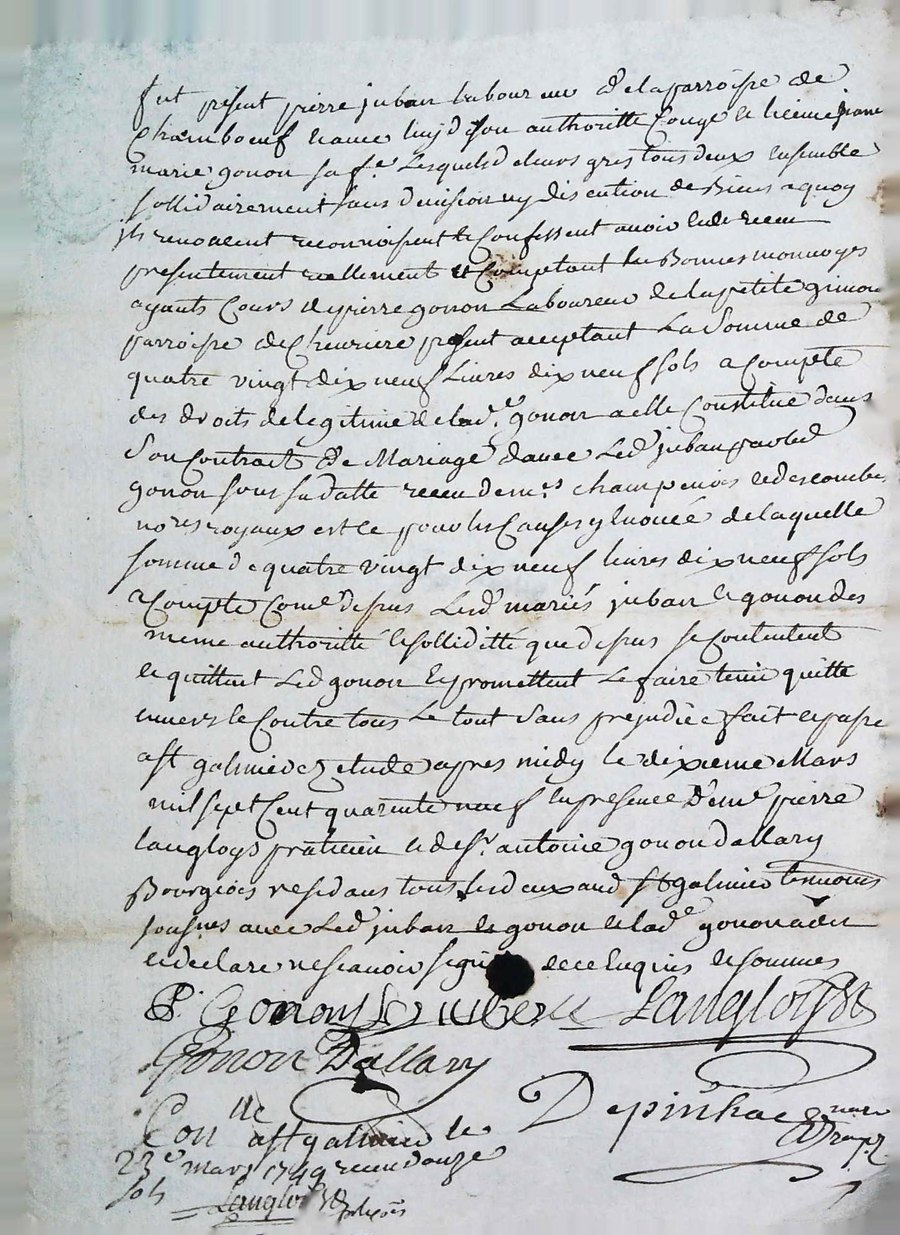 fut présent pierre juban laboureur de la parroisse de
Chamboeuf lequel de son authoritté Congé et licence jeanne
marie gonon sa fe. Lesquels de leurs grés tous deux ensemble
sollidairement sans division ny discution de Biens a quoy
ils renoncent reconnoissent et Confessent avoir eu et receu
presentement reellement et Comptant en Bonnes monnoyes
ayants Cours de pierre gonon Laboureur de la petite gimon
parroisse de Chevriere présent acceptant La Somme de
quatre vingt dix neuf Livres dix neuf sols a Compte
des droits de legitime de lad.e gonon a elle Constitué dans
Son Contract de Mariage d'avec Led juban par led
gonon sous sa datte receu de mrs champenois et descombes
nores royaux est ce pour les Causes y enoncé de laquelle
somme de quatre vingt dix neuf livres dix neuf sols
a Compte Come depus Lesd mariés juban et gonon des
meme authoritté et solliditté que depus se Contentent
et quittent Led gonon et promettent Le faire tenir quitte
envers et Contre tous Le tout Sans prejudice fait et passé
a St galmier etude apres midy le dixieme Mars
mil sept Cent quarente neuf en presence de me pierre
Langloys praticien et de sr. antoine gonon dallary
Bourgeois residans tous les deux aud St galmier temoins
sousnes avec Led juban et gonon et lad.e gonon
a declaré ne scavoir signer de ce enquis et sommés
P. Gonon juben Langlois
Gonon Dallary
Conlle a St galmier le Depinhac nore
23e mars 1749 receu douze
sols Langlois